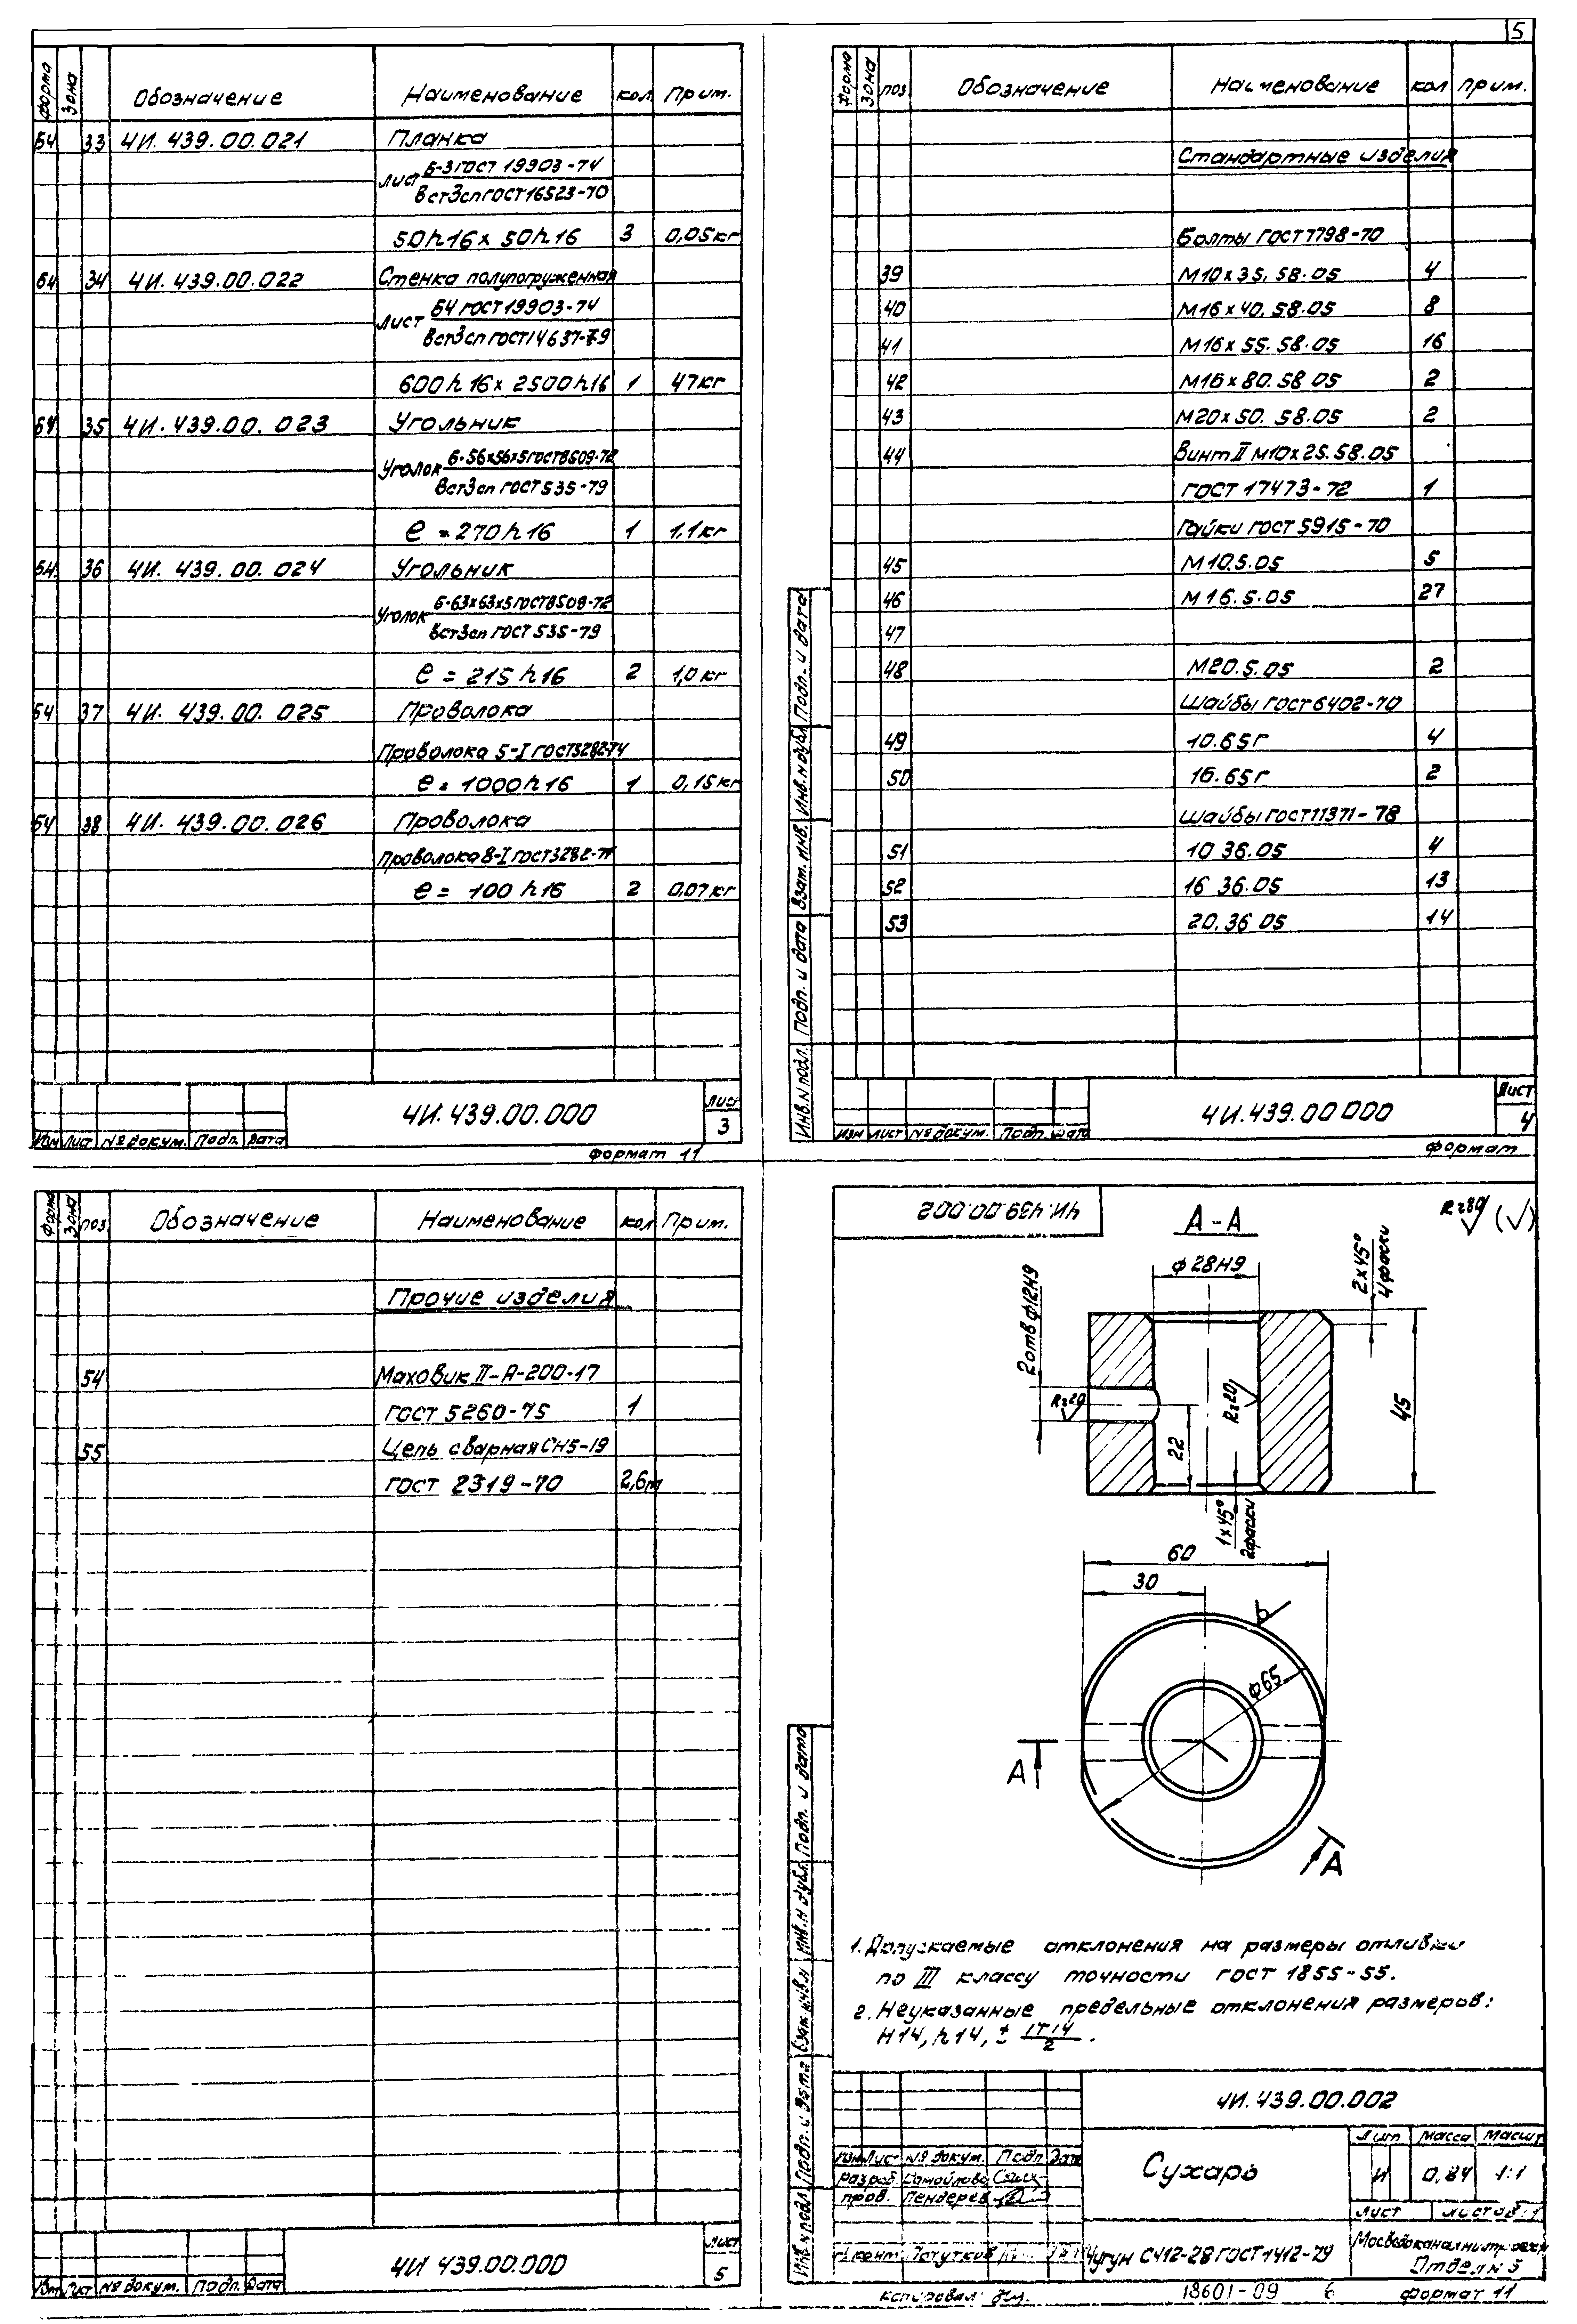 5
Форма Зона Обозначение Наименование Кол Прим.
БЧ 33 ЧИ.439.00.021 Планка
Лист Б-3 ГОСТ 19903-74
Вст3сп ГОСТ 16523-70
50h16 х 50h16 3 0,05кг
БЧ 34 ЧИ.439.00.022 Стенка полупогруженная
Лист Б4 ГОСТ 19903-74
Вст3сп ГОСТ 14637-79
600h16 х 2500h16 1 47кг
БЧ 35 ЧИ.439.00.023 Угольник
Уголок Б-56х56х5 ГОСТ 8509-72
Вст3сп ГОСТ 535-79
ℓ=270h16 1 1,1кг
БЧ 36 ЧИ.439.00.024 Угольник
Уголок Б-63х63х5 ГОСТ 8509-72
Вст3сп ГОСТ 535-79
ℓ=215h16 2 1,0кг
БЧ 37 ЧИ.439.00.025 Проволока
Проволока 5-I ГОСТ 3282-74
ℓ=1000h16 1 0,15кг
БЧ 38 ЧИ.439.00.026 Проволока
Проволока 8-I ГОСТ 3282-74
ℓ=100h16 2 0.07кг
Изм Лист № докум. Подп. Дата
ЧИ.439.00.000
Лист
3
Формат 11
Форма Зона Поз Обозначение Наименование Кол Прим.
Стандартные изделия
Болты ГОСТ 7798-70
39 М10х35.58.05 4
40 М16х40.58.05 8
41 М16х55.58.05 16
42 М16х80.58 05 2
43 М20х50.58.05 2
44 Винт II М10х25.58.05
ГОСТ 17473-72 1
Гайки ГОСТ 5915-70
45 М10.5.05 5
46 М16.5.05 27
47
48 М20.5.05 2
Шайбы ГОСТ 6402-70
49 10.65Г 4
50 16.65Г 2
Шайбы ГОСТ 11371-78
51 10 36.05 4
52 16 36.05 13
53 20.36 05 14
Инв.N подл. Подп. и дата Взам. инв. Инв.N дубл. Подп. и дата
Изм Лист № докум. Подп. Дата
ЧИ.439.00 000
Лист
4
Формат
Форма Зона Поз Обозначение Наименование Кол Прим.
Прочие изделия
54 Маховик II-А-200-17
ГОСТ 5260-75 1
55 Цепь сварная СН5-19
ГОСТ 2319-70 2,6м
Изм Лист № докум. Подп. Дата
ЧИ 439.00.000
Лист
5
ЧИ.439.00.002
А-А
Rz80 (√)
ф28Н9
2х45°
4 фаски
2 отв ф12Н9
Rz20
Rz20
22
45
1х45°
2 фаски
60
30
ф65
А
А
1. Допускаемые отклонения на размеры отливки
по III классу точности ГОСТ 1855-55.
2. Неуказанные предельные отклонения размеров:
Н14, h14, ± IT14/2.
Инв.N подл. Подп. и дата Взам инв.N Инв.N дубл. Подп. и дата
ЧИ.439.00.002
Изм Лист № докум. Подп Дата
Разраб. Самойлова
Пров. Пендерев
Сухарь
Лит Масса Масшт
И 0,84 1:1
Лист Листов 1
Н.конт.
Чугун СЧ12-28 ГОСТ 1412-79
Мосводоканалниипроект
Отдел N 5
Копировал
18601-09 6
Формат 11